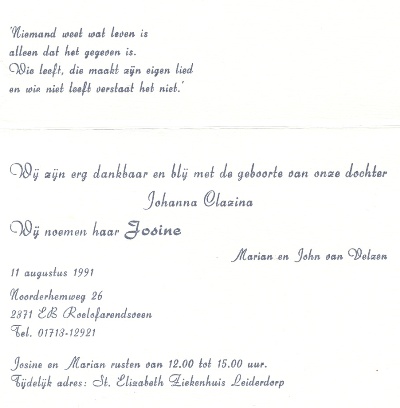 'Niemand weet wat leven is
alleen dat het gegeven is.
Wie leeft, die maakt zijn eigen lied
en wie niet leeft verstaat het niet.'
Wij zijn erg dankbaar en blij met de geboorte van onze dochter
Johanna Clazina
Wij noemen haar Josine
Marian en John van Velzen
11 augustus 1991
Noorderhemweg 26
2371 EB Roelofarendsveen
Tel. 01713-12921
Josine en Marian rusten van 12.00 tot 15.00 uur.
Tijdelijk adres: St. Elizabeth Ziekenhuis Leiderdorp